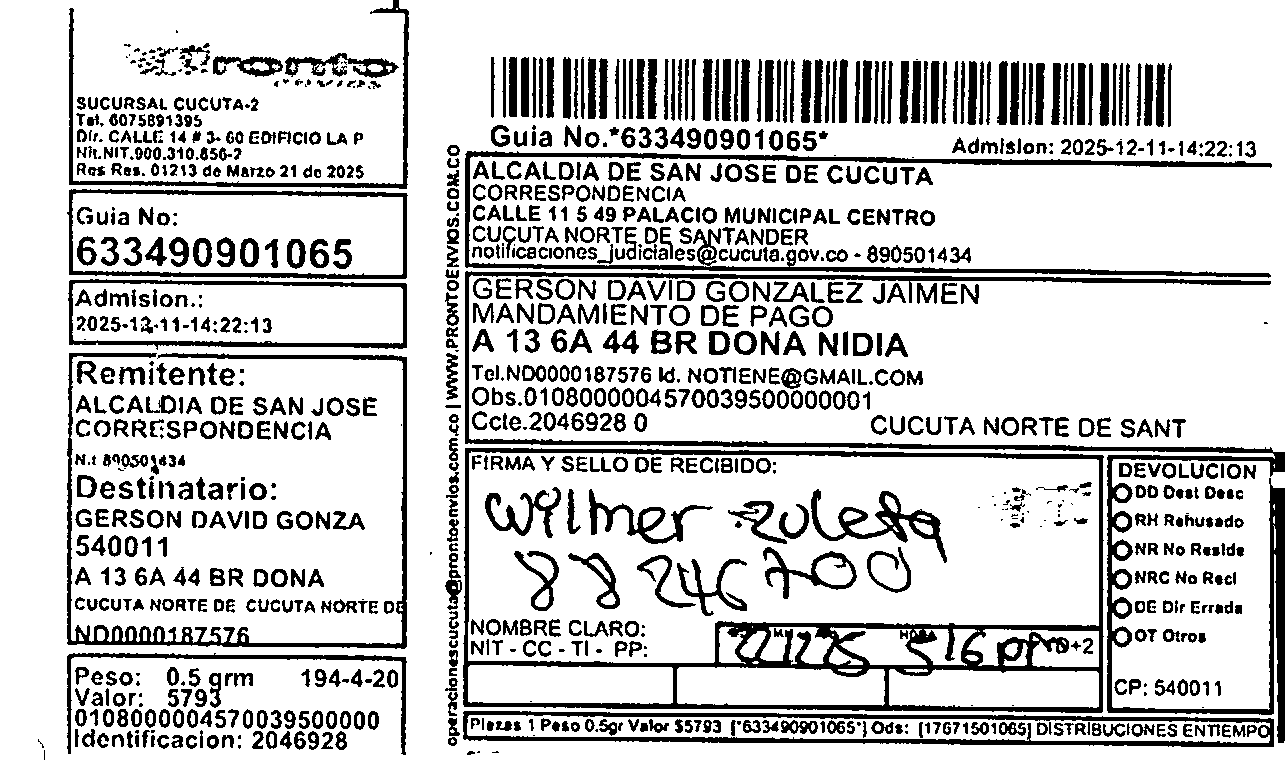 Pronto
envios
SUCURSAL CUCUTA-2
Tel. 6075891395
Dir. CALLE 14 # 3- 60 EDIFICIO LA P
Nit.NIT.900.310.856-2
Res Res. 01213 de Marzo 21 de 2025
Guia No:
633490901065
Admision.:
2025-12-11-14:22:13
Remitente:
ALCALDIA DE SAN JOSE
CORRESPONDENCIA
N.t 890501434
Destinatario:
GERSON DAVID GONZA
540011
A 13 6A 44 BR DONA
CUCUTA NORTE DE CUCUTA NORTE DE
ND0000187576
Peso: 0.5 grm 194-4-20
Valor: 5793
0108000004570039500000
Identificacion: 2046928
operacionescucuta@prontoenvios.com.co | WWW.PRONTOENVIOS.COM.CO
Guia No.*633490901065*
Admision: 2025-12-11-14:22:13
ALCALDIA DE SAN JOSE DE CUCUTA
CORRESPONDENCIA
CALLE 11 5 49 PALACIO MUNICIPAL CENTRO
CUCUTA NORTE DE SANTANDER
notificaciones_judiciales@cucuta.gov.co - 890501434
GERSON DAVID GONZALEZ JAIMEN
MANDAMIENTO DE PAGO
A 13 6A 44 BR DONA NIDIA
Tel.ND0000187576 Id. NOTIENE@GMAIL.COM
Obs.0108000004570039500000001
Ccte.2046928 0 CUCUTA NORTE DE SANT
FIRMA Y SELLO DE RECIBIDO:
Wilmer Zuleta
88246700
NOMBRE CLARO:
NIT - CC - TI - PP:
HORA
516 pm +2
DEVOLUCION
DD Dest Desc
RH Rehusado
NR No Reside
NRC No Recl
DE Dir Errada
OT Otros
CP: 540011
Piezas 1 Peso 0.5gr Valor $5793 [*633490901065*] Ods: [17671501065] DISTRIBUCIONES ENTIEMPO